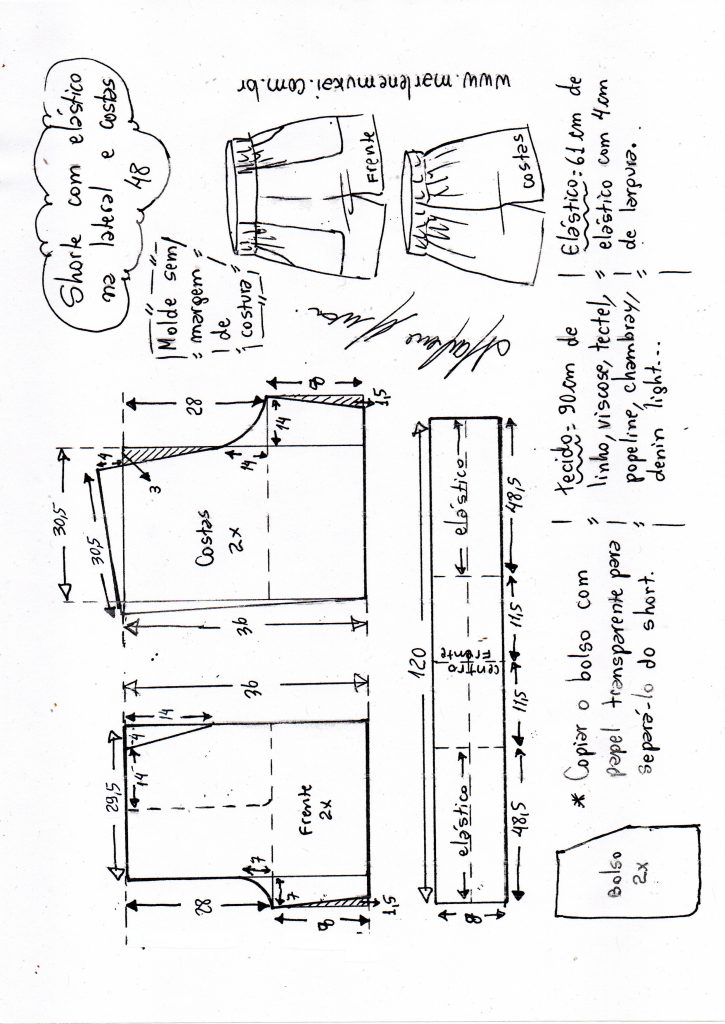 Shorte com elástico
na lateral e costas
48
Molde sem
margem
de
costura
www.marlenemukai.com.br
Frente
Costas
36
29,5
14
4
14
Frente
2x
28
7
7
8
1,5
36
30,5
30,5
4
3
Costas
2x
28
14
14
8
1,5
120
elástico
centro
Frente
elástico
8
48,5
11,5
11,5
48,5
Bolso
2x
* Copiar o bolso com
papel transparente para
separá-lo do short.
tecido = 90cm de
linho, viscose, tectel,
popeline, chambray,
denin light...
Elástico = 61 cm de
elástico com 4cm
de largura.